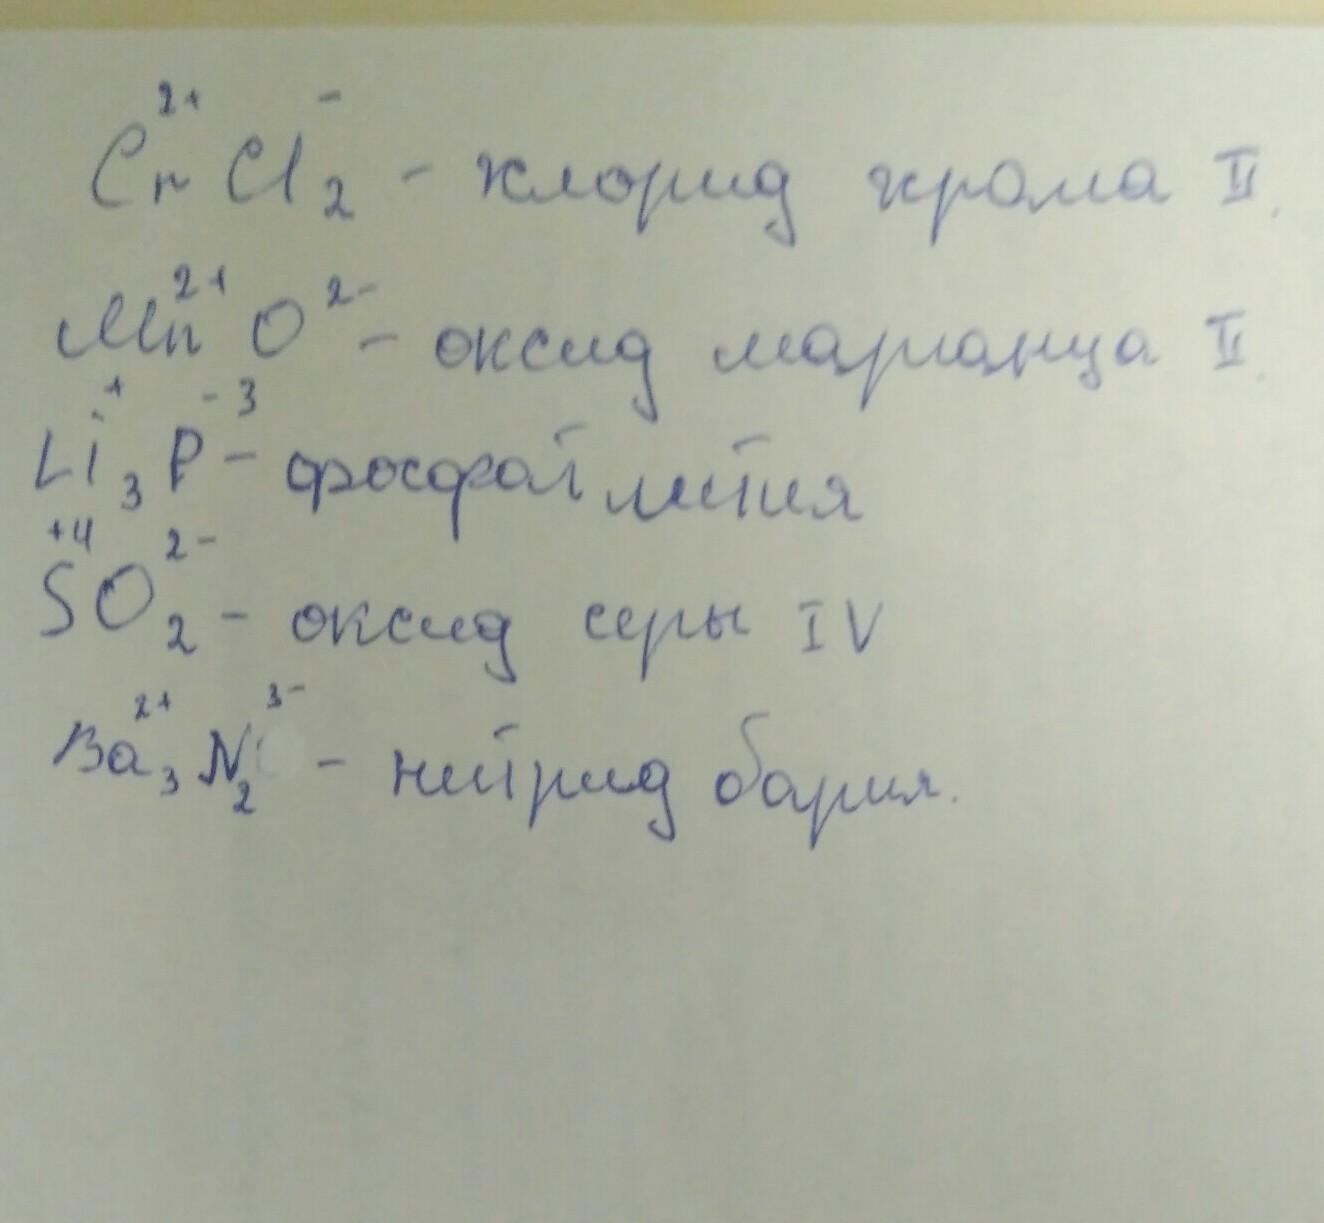 Cr²⁺Cl₂⁻ - хлорид хрома II.
Mn²⁺O²⁻ - оксид марганца II.
Li⁺₃P⁻³ - фосфат лития
S⁺⁴O₂²⁻ - оксид серы IV
Ba²⁺₃N₂³⁻ - нитрид бария.